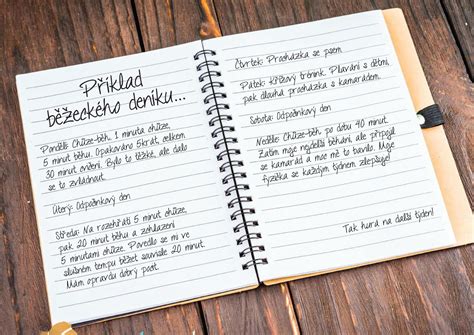 Příklad
běžeckého deníku...
Pondělí: Chůze-běh. 1 minuta chůze,
5 minut běhu. Opakováno 5krát, celkem
30 minut cvičení. Bylo to těžké, ale dalo
se to zvládnout.
Úterý: Odpočinkový den
Středa: Na rozehřátí 5 minut chůze,
pak 20 minut běhu a zchlazení
5 minutami chůze. Povedlo se mi ve
slušném tempu běžet souvisle 20 minut.
Mám opravdu dobrý pocit.
Čtvrtek: Procházka se psem
Pátek: Křížový trénink. Plavání s dětmi,
pak dlouhá procházka s kamarádem.
Sobota: Odpočinkový den
Neděle: Chůze-běh po dobu 40 minut.
Zatím moje nejdelší běhání, ale připojil
se kamarád a moc mě to bavilo. Moje
fyzička se každým týdnem zlepšuje!
Tak hurá na další týden!